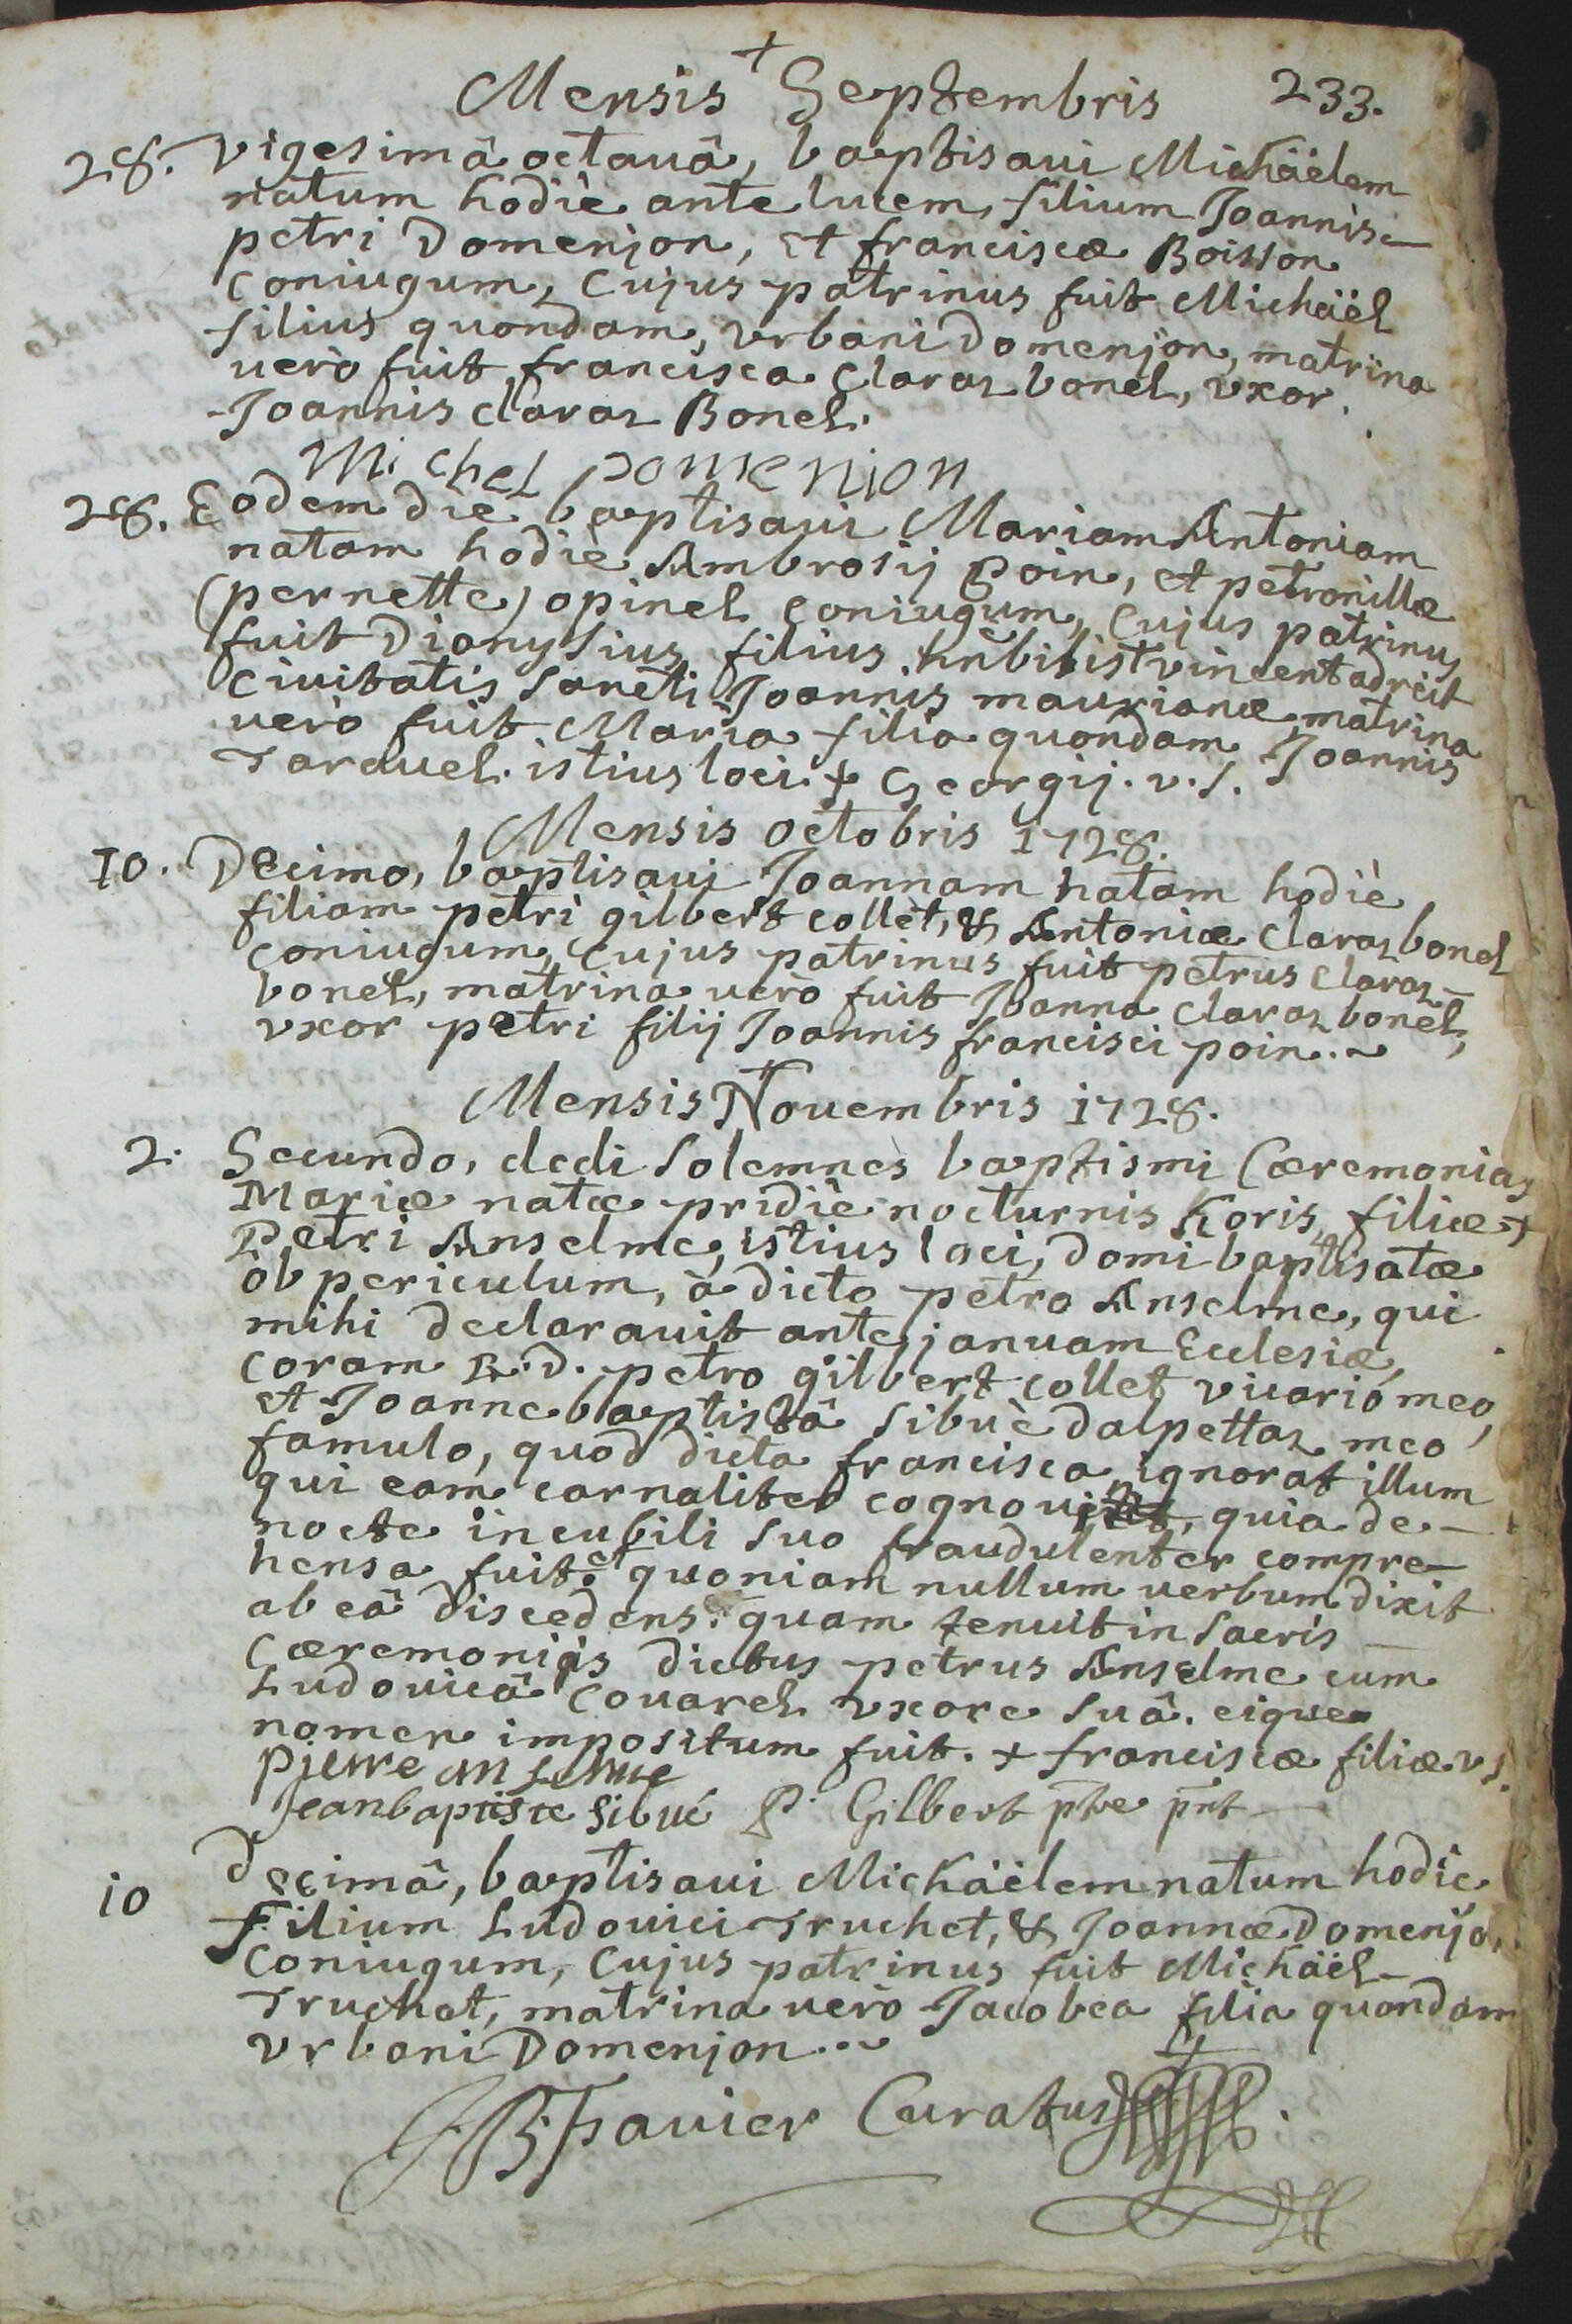 +
Mensis Septembris 233.
28. Vigesimâ octauâ, baptisaui Michäëlem
natum hodiè ante lucem, filium Joannis
petri Domenjon, et franciscæ Boisson
coniugum, Cujus patrinus fuit Michäël
filius quondam, vrbani Domenjon, matrina
uerò fuit francisca Claraz bonel, vxor
Joannis claraz Bonel.
Michel Domenjon
28. Eodem die baptisaui Mariam Antoniam
natam hodiè Ambrosij Poin, et petronillæ
(pernette) opinel coniugum, Cujus patrinus
fuit Dionysius filius vincent adreit
Ciuitatis Sancti Joannis maurianæ matrina
uerò fuit Maria filia quondam Joannis
Taravel istius loci. + Georgij. v. s.
Mensis octobris 1728.
10. Decimo, baptisaui Joannam natam hodiè
filiam petri gilbert collet, & Antoniæ claraz bonel
coniugum, Cujus patrinus fuit petrus claraz
bonel, matrina uerò fuit Joanna claraz bonel,
vxor petri filij Joannis francisci poin..
Mensis Nouembris 1728.
2. Secundo, dedi solemnes baptismi Cæremonias
Mariæ natæ pridiè nocturnis horis, filiæ +
Petri Anselme, istius loci, domi baptisatæ
ob periculum, à dicto petro Anselme, qui
mihi declarauit ante januam Ecclesiæ,
coram R. D. petro gilbert collet vicario meo,
et Joanne baptistâ Sibuè dalpettaz meo
famulo, quod dicta francisca ignorat illum
qui eam carnaliter cognouit, quia de
nocte in cubili suo fraudulenter compre
hensa fuit et quoniam nullum uerbum dixit
ab eâ discedens. quam tenuit in sacris
Cæremonijs dictus petrus Anselme cum
Ludouicâ Couarel vxore suâ. eique
nomen impositum fuit. + franciscæ filiæ v s.
pierre anselme
Jeanbaptiste Sibué P. Gilbert ptre pnt
10 Decimâ, baptisaui Michäëlem natum hodie
Filium Ludouici Truchet, & Joannæ Domenjon
Coniugum, Cujus patrinus fuit Michäël
Truchet, matrina uerò Jacobea filia quondam
Vrbani Domenjon..
Curatus